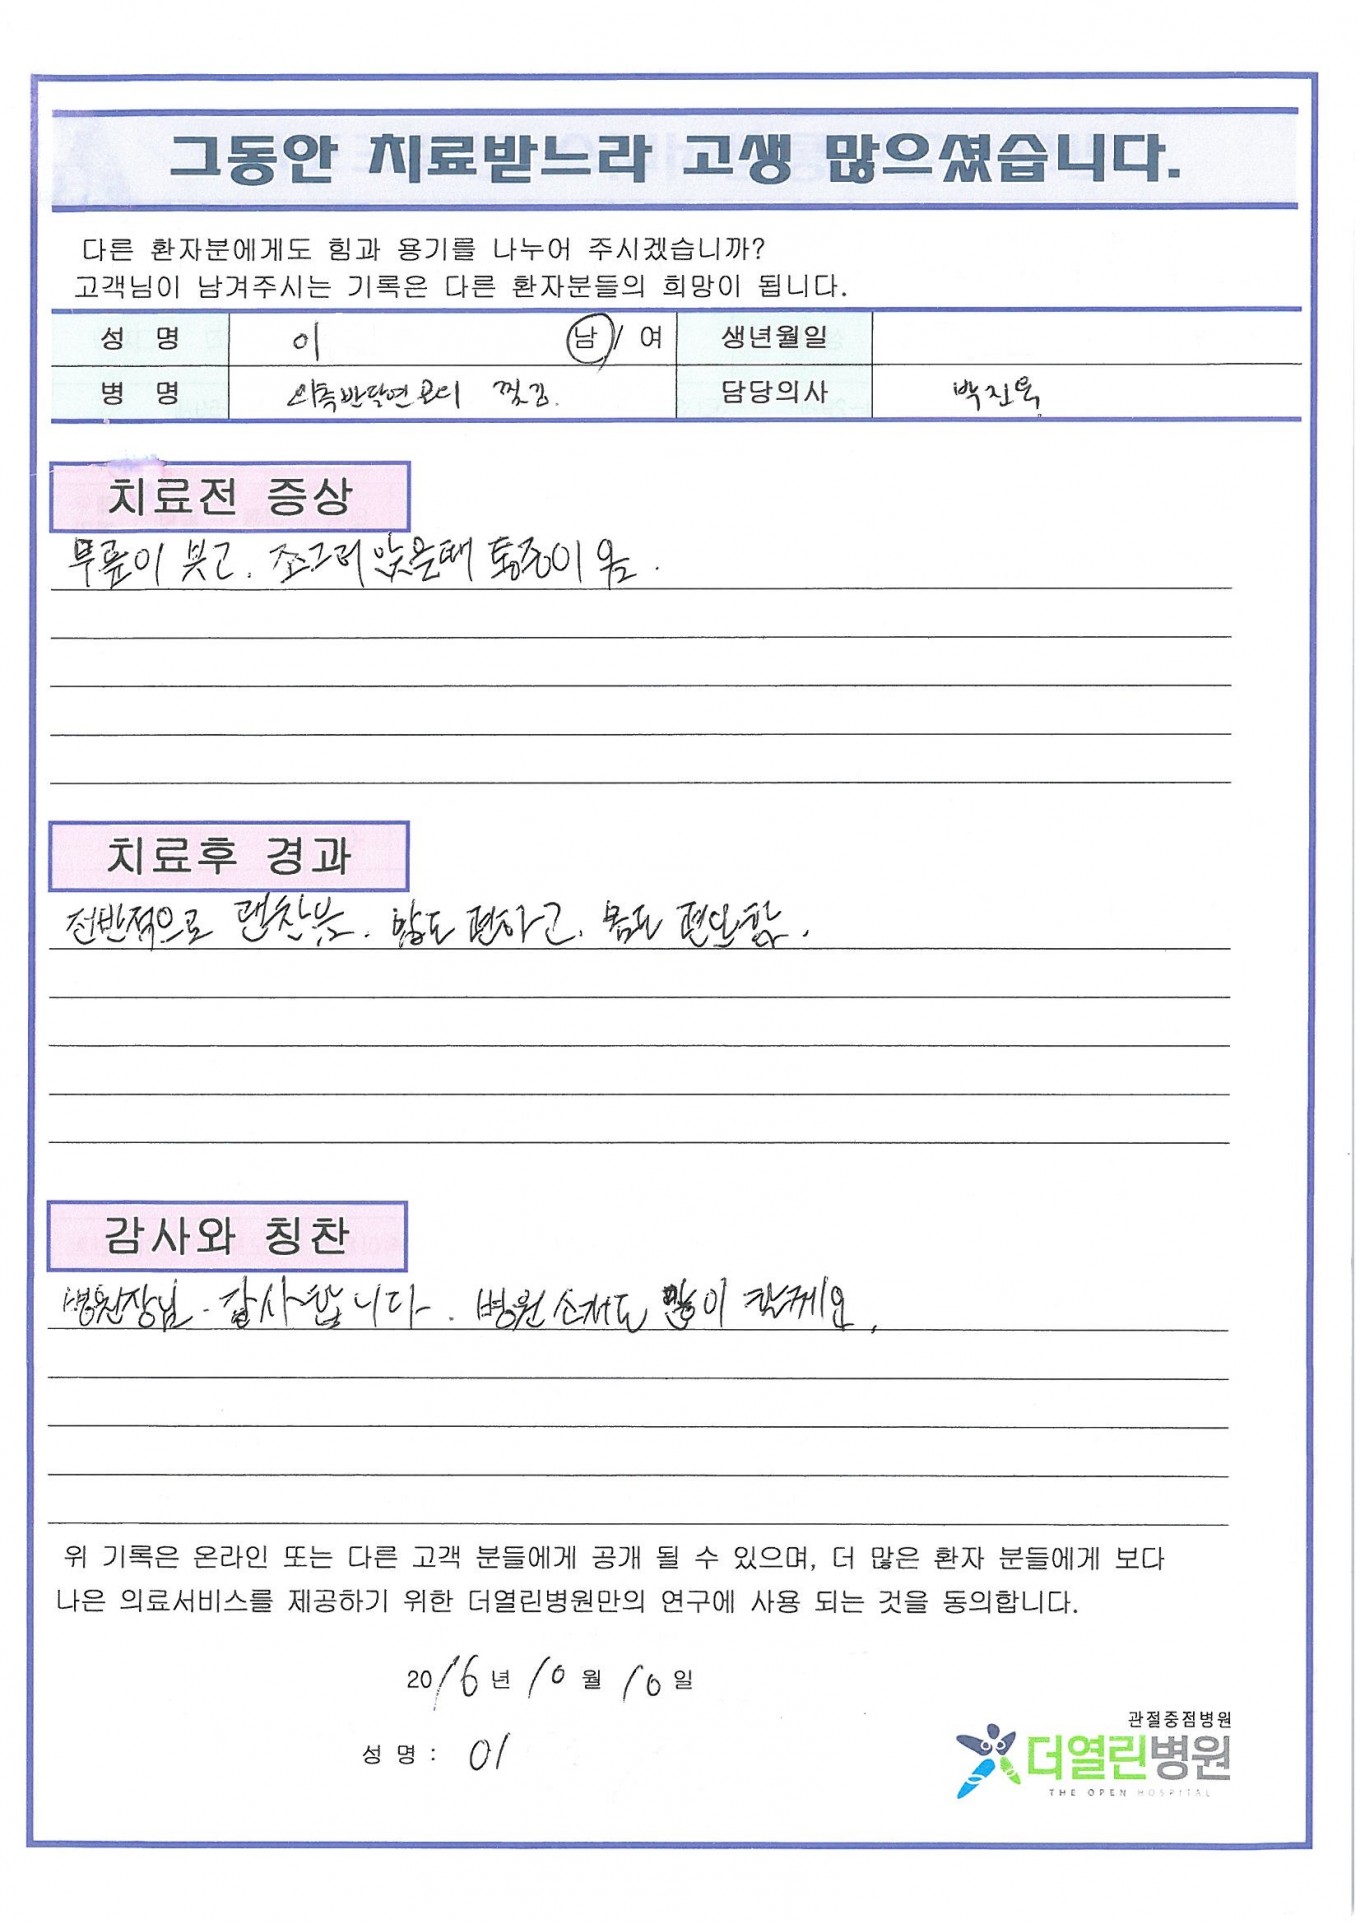 그동안 치료받느라 고생 많으셨습니다.
다른 환자분에게도 힘과 용기를 나누어 주시겠습니까?
고객님이 남겨주시는 기록은 다른 환자분들의 희망이 됩니다.
성 명 이 남 / 여 생년월일
병 명 외측반달연골이 찢김. 담당의사 박진욱
치료전 증상
무릎이 붓고. 쪼그려 앉을때 통증이 옴.
치료후 경과
전반적으로 괜찮음. 맘도 편하고. 몸도 편안함.
감사와 칭찬
병원장님. 감사합니다. 병원 소개도 많이 할께요.
위 기록은 온라인 또는 다른 고객 분들에게 공개 될 수 있으며, 더 많은 환자 분들에게 보다
나은 의료서비스를 제공하기 위한 더열린병원만의 연구에 사용 되는 것을 동의합니다.
2016년 10월 10일
성 명 : 이
관절중점병원
더열린병원
THE OPEN HOSPITAL